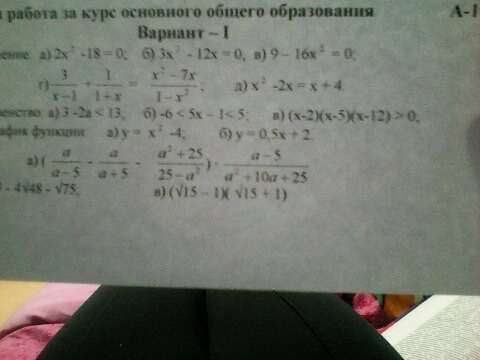 работа за курс основного общего образования А-1
Вариант – I
а) 2x² -18 = 0; б) 3x² - 12x = 0, в) 9 – 16x² = 0;
г) 3/(x–1) + 1/(1+x) = (x² – 7x)/(1–x²); д) x² -2x = x + 4
а) 3 -2a < 13; б) -6 < 5x – 1< 5; в) (x-2)(x-5)(x-12) > 0;
функции а) y = x² -4; б) y = 0,5x + 2
а) ( a/(a–5) - a/(a+5) - (a² + 25)/(25–a²) ) · (a–5)/(a² +10a +25)
- 4√48 - √75, в) (√15 – 1)( √15 + 1)